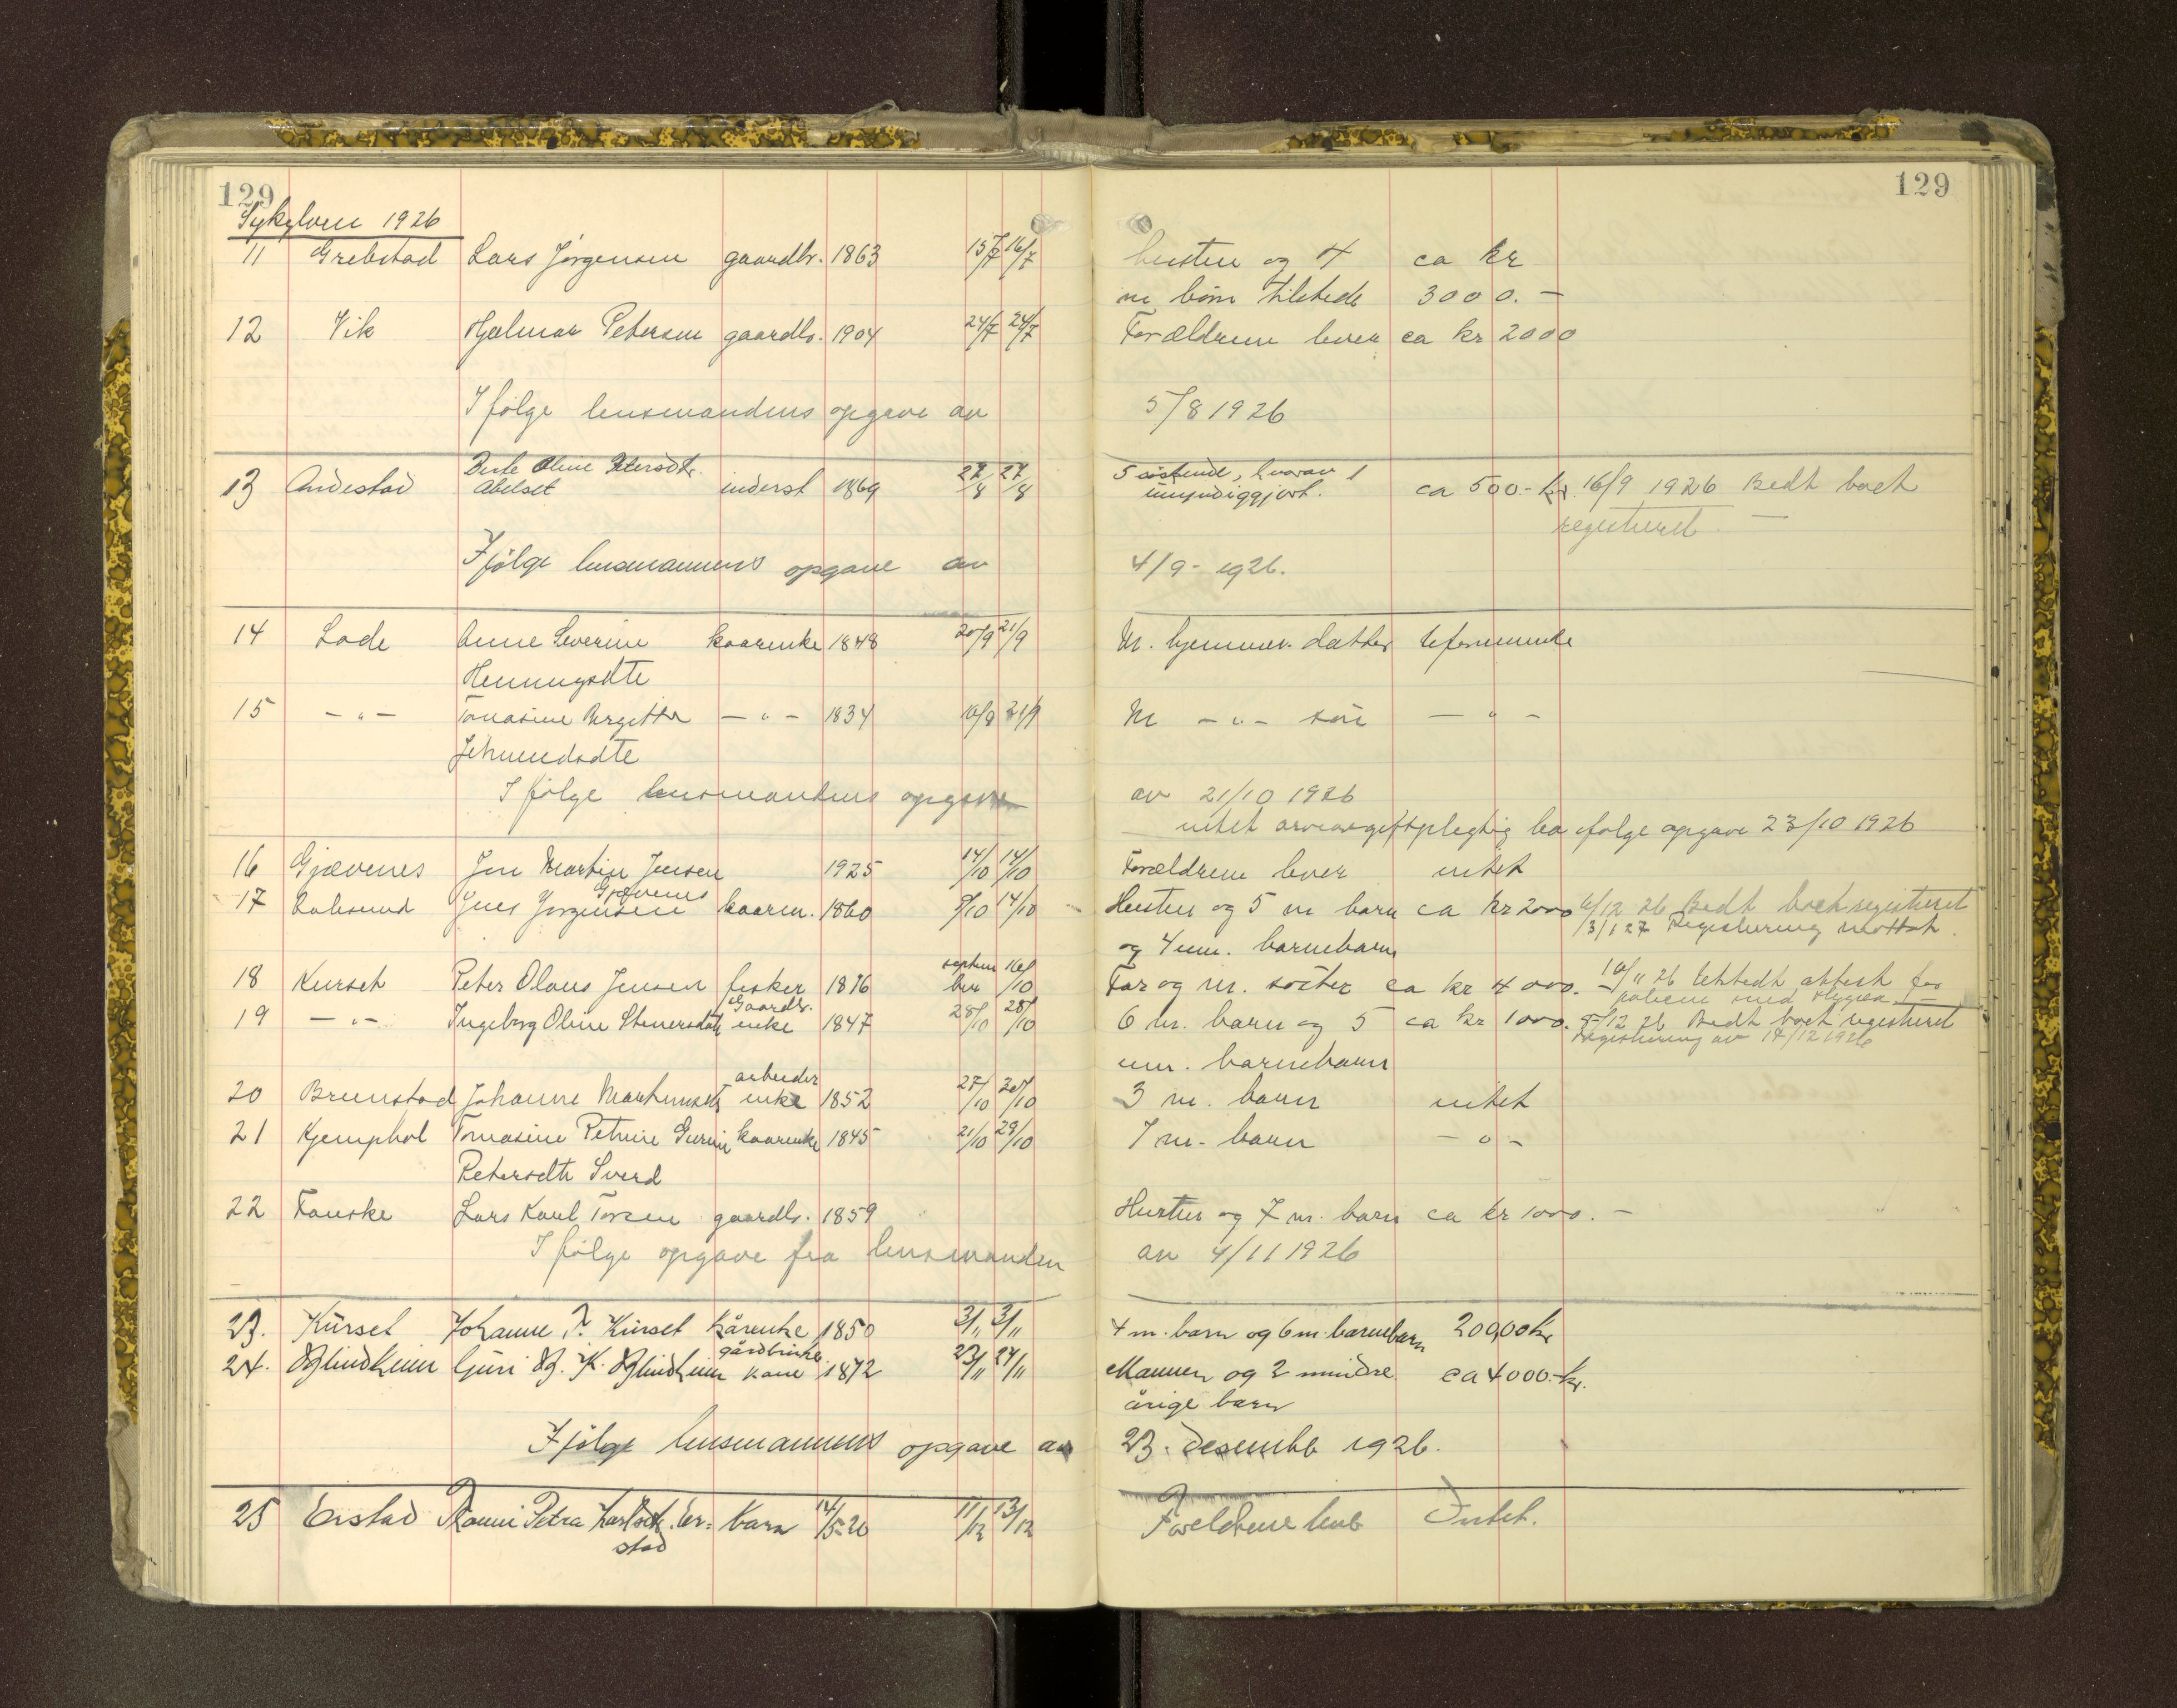 129
129
Sykylven 1926
11 Grebstad Lars Jørgensen gaardbr. 1863 15/7 16/7 hustru og 4 ca kr
m børn tilstede 3000.-
12 Vik Hjalmar Petersen gaardbr. 1904 24/7 24/7 Forældrene lever ca kr 2000
Ifølge lensmandens opgave av 5/8 1926
13 Andestad Berte Oline Petersdtr. inderst 1869 27/8 27/8 5 søskende, hvorav 1 ca 500.- kr. 16/9 1926 Bedt boet
Abelset umyndiggjort. registreret. -
Ifølge lensmannens opgave av 4/9 - 1926.
14 Lade Anne Severine kaarenke 1848 20/9 21/9 M. hjemmev. datter Uformuende
Henningsdtr
15 - " - Tomasine Bergitta - " - 1834 16/9 21/9 M - " - søn - " -
Jetmundsdtr
Ifølge lensmandens opgave av 21/10 1926
intet arveavgiftspligtig bo ifølge opgave 23/10 1926
16 Gjævenes Jon Martin Jensen 1925 14/10 14/10 Forældrene lever intet
Gjævenes
17 Jens Jørgensen kaarm. 1860 9/10 14/10 Hustru og 5 m barn ca kr 2000 6/12 26 Bedt boet registreret
og 4 um. barnebarn 3/1 27 Registrering mottat.
18 Kurset Peter Olaus Jensen fisker 1876 septem ber 16/10 Far og m. søster ca kr 4000. - 10/11 26 Utstedt attest for
19 - " - Ingeborg Oline Steinersdatr Gaardbr. enke 1847 28/10 28/10 6 m. barn og 5 ca kr 1000. 8/12 26 Bedt boet registreret
um. barnebarn Registrering av 14/12 1926
20 Brunstad Johanne Martinusdtr arbeider enke 1852 27/10 28/10 3 m. barn intet
21 Kjemphol Tomasine Petrine Gurine kaarenke 1845 21/10 29/10 7 m. barn - " -
Petersdtr Sverd
22 Fauske Lars Karl Torsen gaardbr. 1859 Hustru og 7 m. barn ca kr 1000. -
Ifølge opgave fra lensmanden av 4/11 1926
23. Kurset Johanne P. Kurset kårenke 1850 3/11 3/11 4 m. barn og 6 m. barnebarn 200,00 kr
24. Øglindheim Guri K. Øglindheim gårdbruker kone 1872 23/11 24/11 Mannen og 2 mindre ca 4000.- kr.
årige barn
Ifølge lensmannens opgave av 23. desember 1926.
25 Erstad Petra Karlsdtr. Er= barn 14/5-26 11/12 13/12 Foreldrene lever Intet.
stad